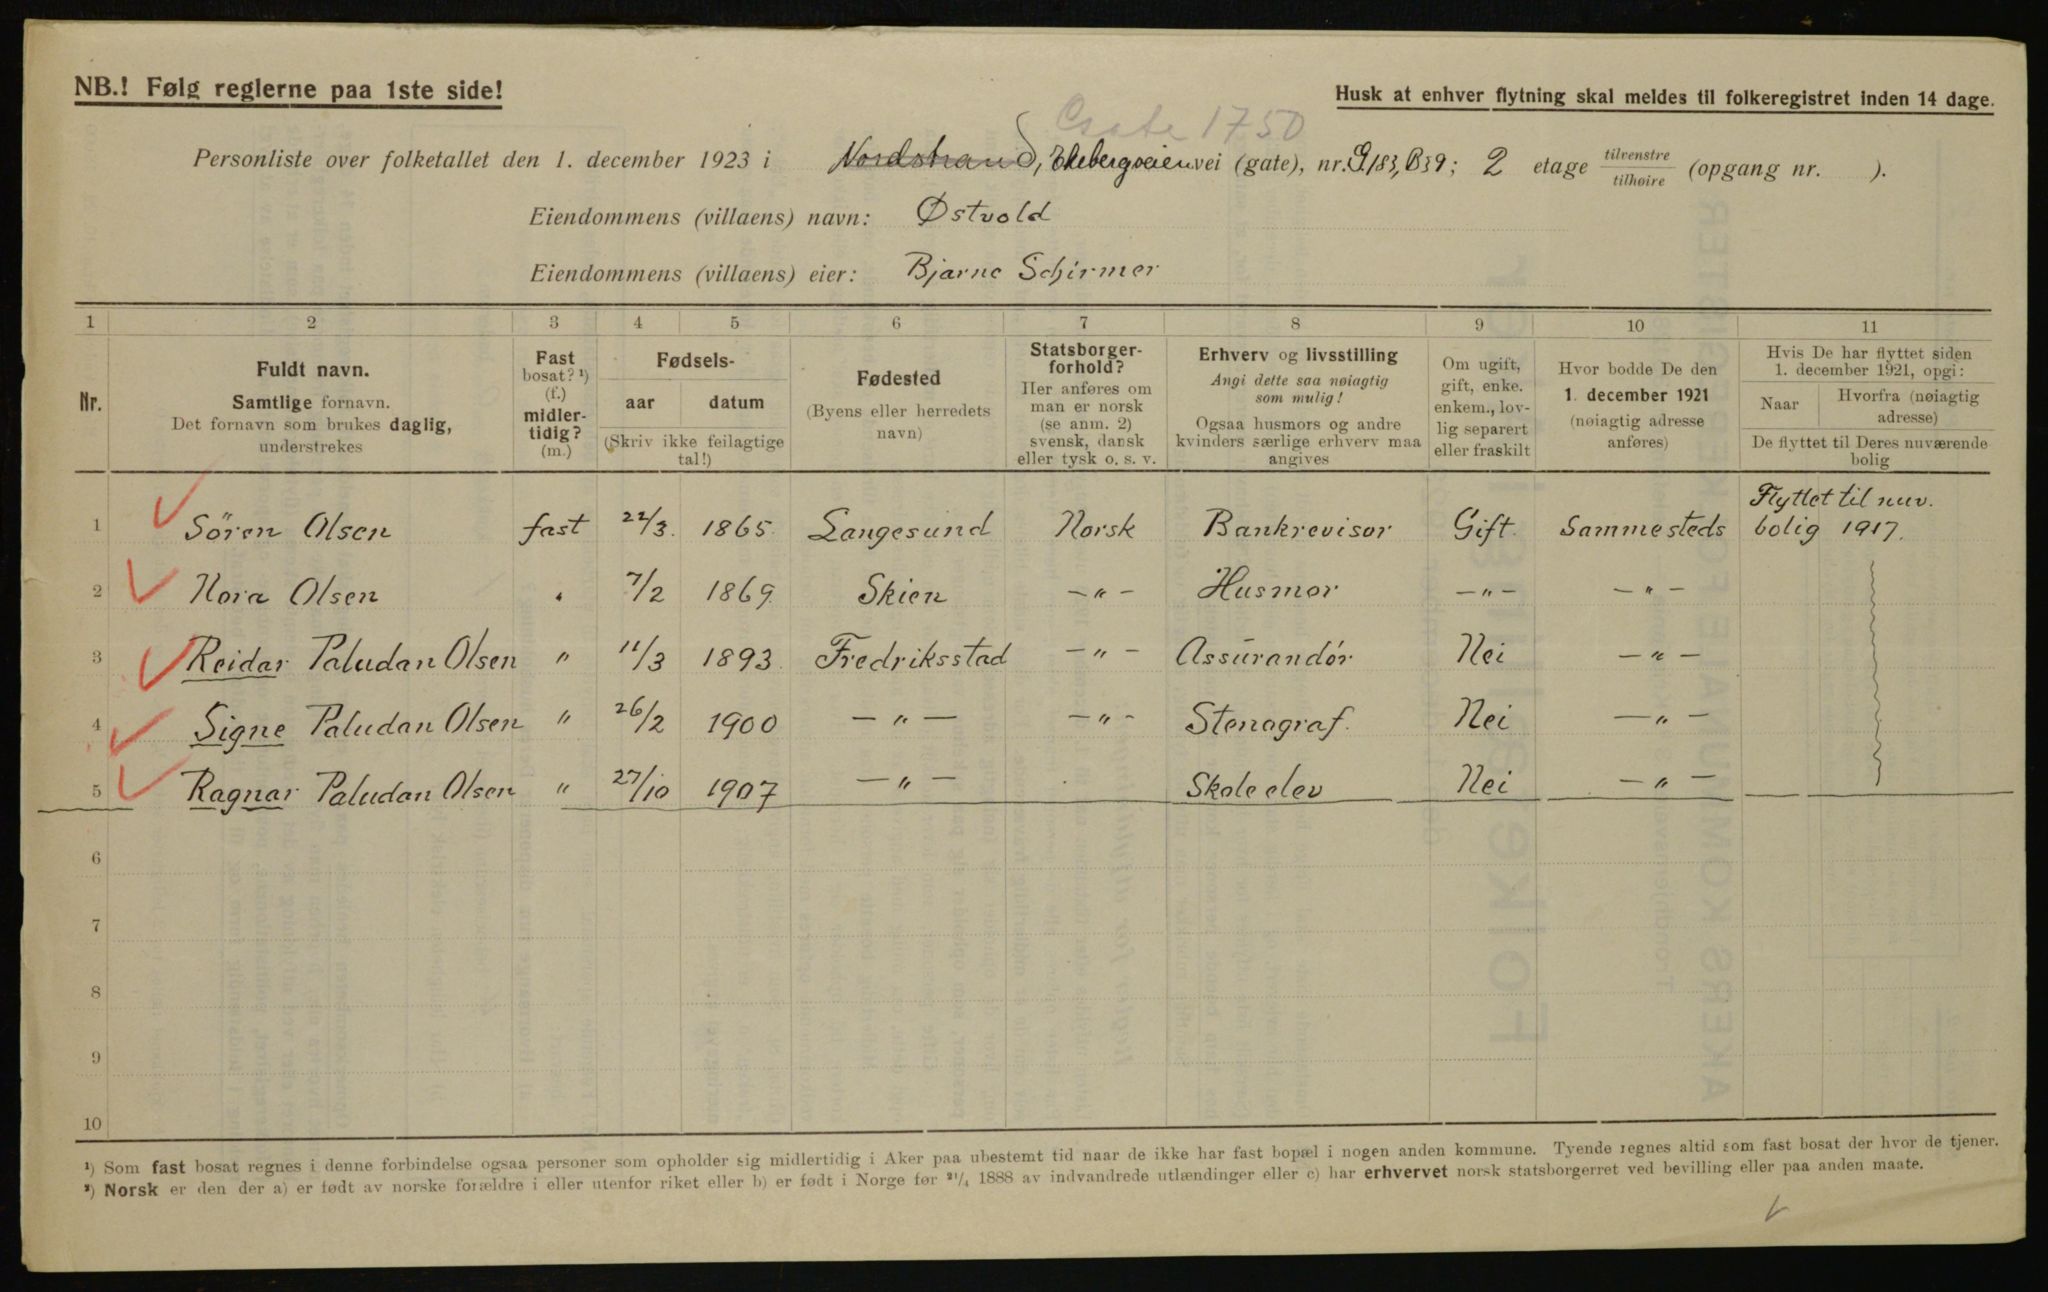 NB.! Følg reglerne paa 1ste side!
Husk at enhver flytning skal meldes til folkeregistret inden 14 dage.
1750
Personliste over folketallet den 1. december 1923 i Nordstrand, Ekebergveien vei (gate), nr. G.183, B39; 2 etage tilvenstre / tilhøire (opgang nr. ).
Eiendommens (villaens) navn: Østvold
Eiendommens (villaens) eier: Bjarne Schirmer
1 2 3 4 5 6 7 8 9 10 11
Nr.
Fuldt navn.
Samtlige fornavn.
Det fornavn som brukes daglig,
understrekes
Fast
bosat? ¹)
(f.)
midler-
tidig?
(m.)
Fødsels-
aar datum
(Skriv ikke feilagtige
tal!)
Fødested
(Byens eller herredets
navn)
Statsborger-
forhold?
Her anføres om
man er norsk
(se anm. 2)
svensk, dansk
eller tysk o. s. v.
Erhverv og livsstilling
Angi dette saa nøiagtig
som mulig!
Ogsaa husmors og andre
kvinders særlige erhverv maa
angives
Om ugift,
gift, enke.
enkem., lov-
lig separert
eller fraskilt
Hvor bodde De den
1. december 1921
(nøiagtig adresse
anføres)
Hvis De har flyttet siden
1. december 1921, opgi:
Naar
Hvorfra (nøiagtig
adresse)
De flyttet til Deres nuværende
bolig
1 Sören Olsen fast 22/3. 1865. Langesund Norsk Bankrevisor Gift. Sammesteds Flyttet til nuv.
bolig 1917.
2 Nora Olsen " 7/2 1869. Skien —"— Husmor —"— —"—
3 Reidar Paludan Olsen " 11/3 1893. Fredriksstad —"— Assurandör Nei —"—
4 Signe Paludan Olsen " 26/2 1900 —"— —"— Stenograf. Nei —"—
5 Ragnar Paludan Olsen " 27/10 1907 —"— Skoleelev Nei —"—
6
7
8
9
10
¹) Som fast bosat regnes i denne forbindelse ogsaa personer som opholder sig midlertidig i Aker paa ubestemt tid naar de ikke har fast bopæl i nogen anden kommune. Tyende regnes altid som fast bosat der hvor de tjener.
²) Norsk er den der a) er født av norske forældre i eller utenfor riket eller b) er født i Norge før ²¹/₄ 1888 av indvandrede utlændinger eller c) har erhvervet norsk statsborgerret ved bevilling eller paa anden maate.